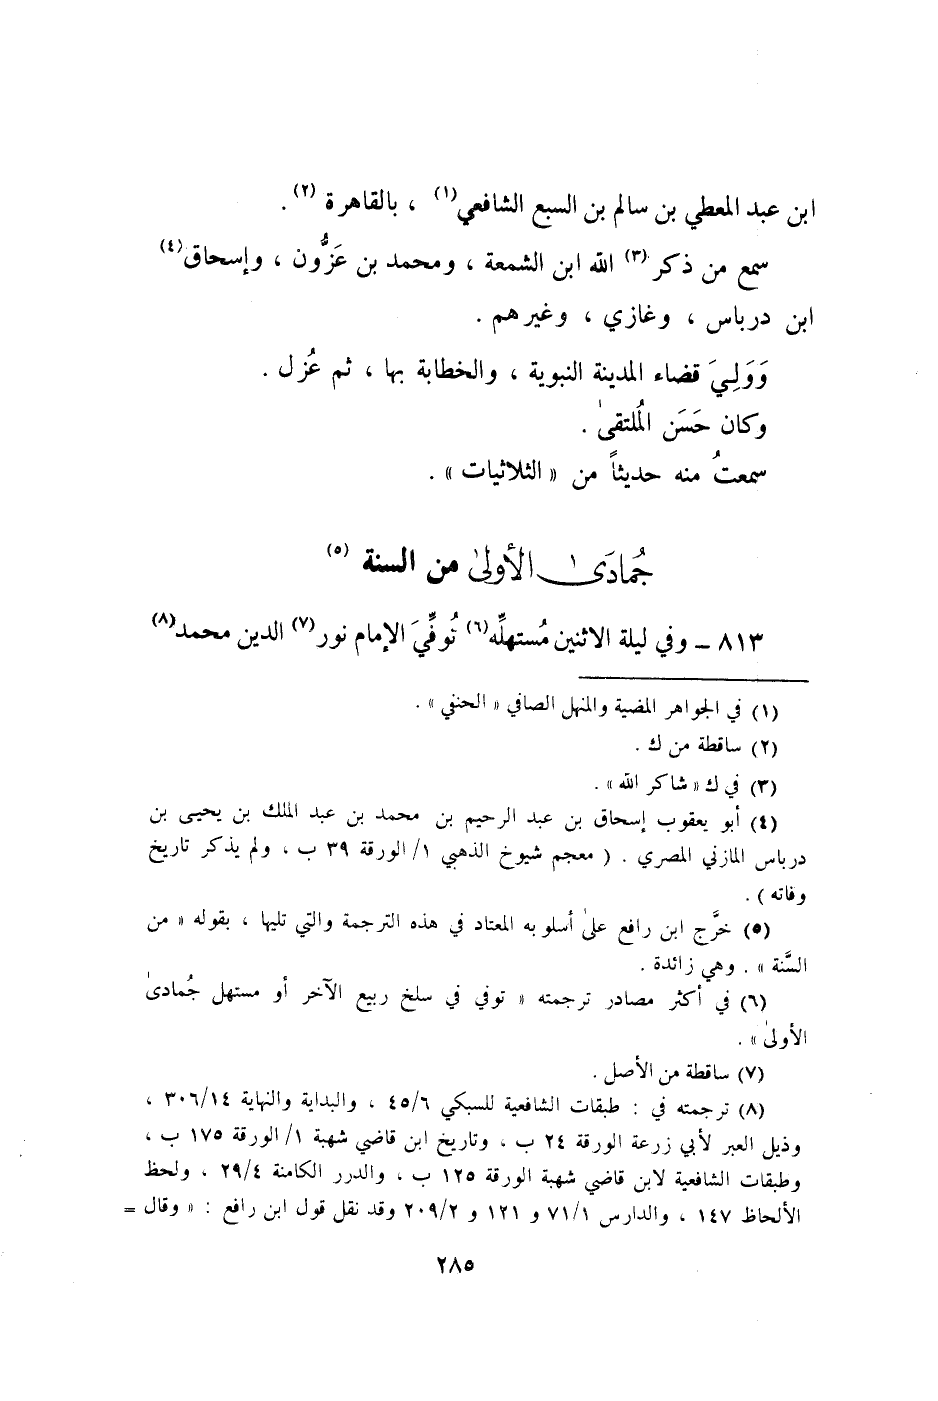 ابن عبد المعطي بن سالم بن السبع الشافعي(١) ، بالقاهرة (٢) .
سمع من ذكر (٣) الله ابن الشمعة ، ومحمد بن عَزُّون ، وإسحاق(٤)
ابن درباس ، وغازي ، وغيرهم .
وَوَلِيَ قضاء المدينة النبوية ، والخطابة بها ، ثم عُزل .
وكان حَسَن المُلتقىٰ .
سمعتُ منه حديثاً من « الثلاثيات » .
جُمادَىٰ الأولىٰ من السنة (٥)
٨١٣ ـ وفي ليلة الاثنين مُستهلِّه(٦) تُوفِّيَ الإمام نور(٧) الدين محمد(٨)
(١) في الجواهر المضية والمنهل الصافي « الحنفي » .
(٢) ساقطة من ك .
(٣) في ك « شاكر الله » .
(٤) أبو يعقوب إسحاق بن عبد الرحيم بن محمد بن عبد الملك بن يحيى بن
درباس المازني المصري . ( معجم شيوخ الذهبي ١/ الورقة ٣٩ ب ، ولم يذكر تاريخ
وفاته ) .
(٥) خرَّج ابن رافع علىٰ أسلوبه المعتاد في هذه الترجمة والتي تليها ، بقوله « من
السَّنة » . وهي زائدة .
(٦) في أكثر مصادر ترجمته « توفي في سلخ ربيع الآخر أو مستهل جُمادىٰ
الأولىٰ » .
(٧) ساقطة من الأصل .
(٨) ترجمته في : طبقات الشافعية للسبكي ٤٥/٦ ، والبداية والنهاية ٣٠٦/١٤ ،
وذيل العبر لأبي زرعة الورقة ٢٤ ب ، وتاريخ ابن قاضي شهبة ١/ الورقة ١٧٥ ب ،
وطبقات الشافعية لابن قاضي شهبة الورقة ١٢٥ ب ، والدرر الكامنة ٢٩/٤ ، ولحظ
الألحاظ ١٤٧ ، والدارس ٧١/١ و ١٢١ و ٢٠٩/٢ وقد نقل قول ابن رافع : « وقال =
٢٨٥